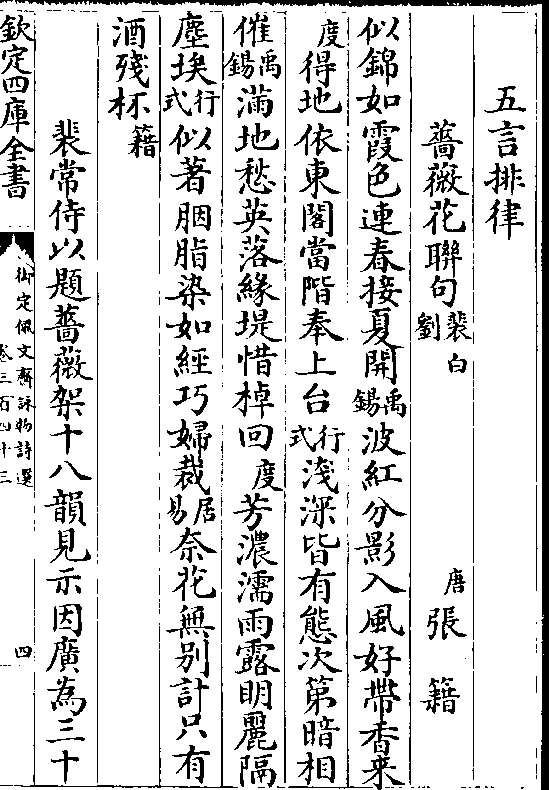 五言排律
薔薇花聯句裴白劉 唐張籍
似錦如霞色連春接夏開禹錫波紅分影入風好帶香來
度得地依東閣當階奉上台行式淺深皆有態次第暗相
催禹錫滿地愁英落緣堤惜棹回度芳濃濡雨露明麗隔
塵埃行式似著胭脂染如經巧婦裁居易奈花無別計只有
酒殘杯籍
裴常侍以題薔薇架十八韻見示因廣為三十
欽定四庫全書
御定佩文齋詠物詩選
卷三百四十三
四